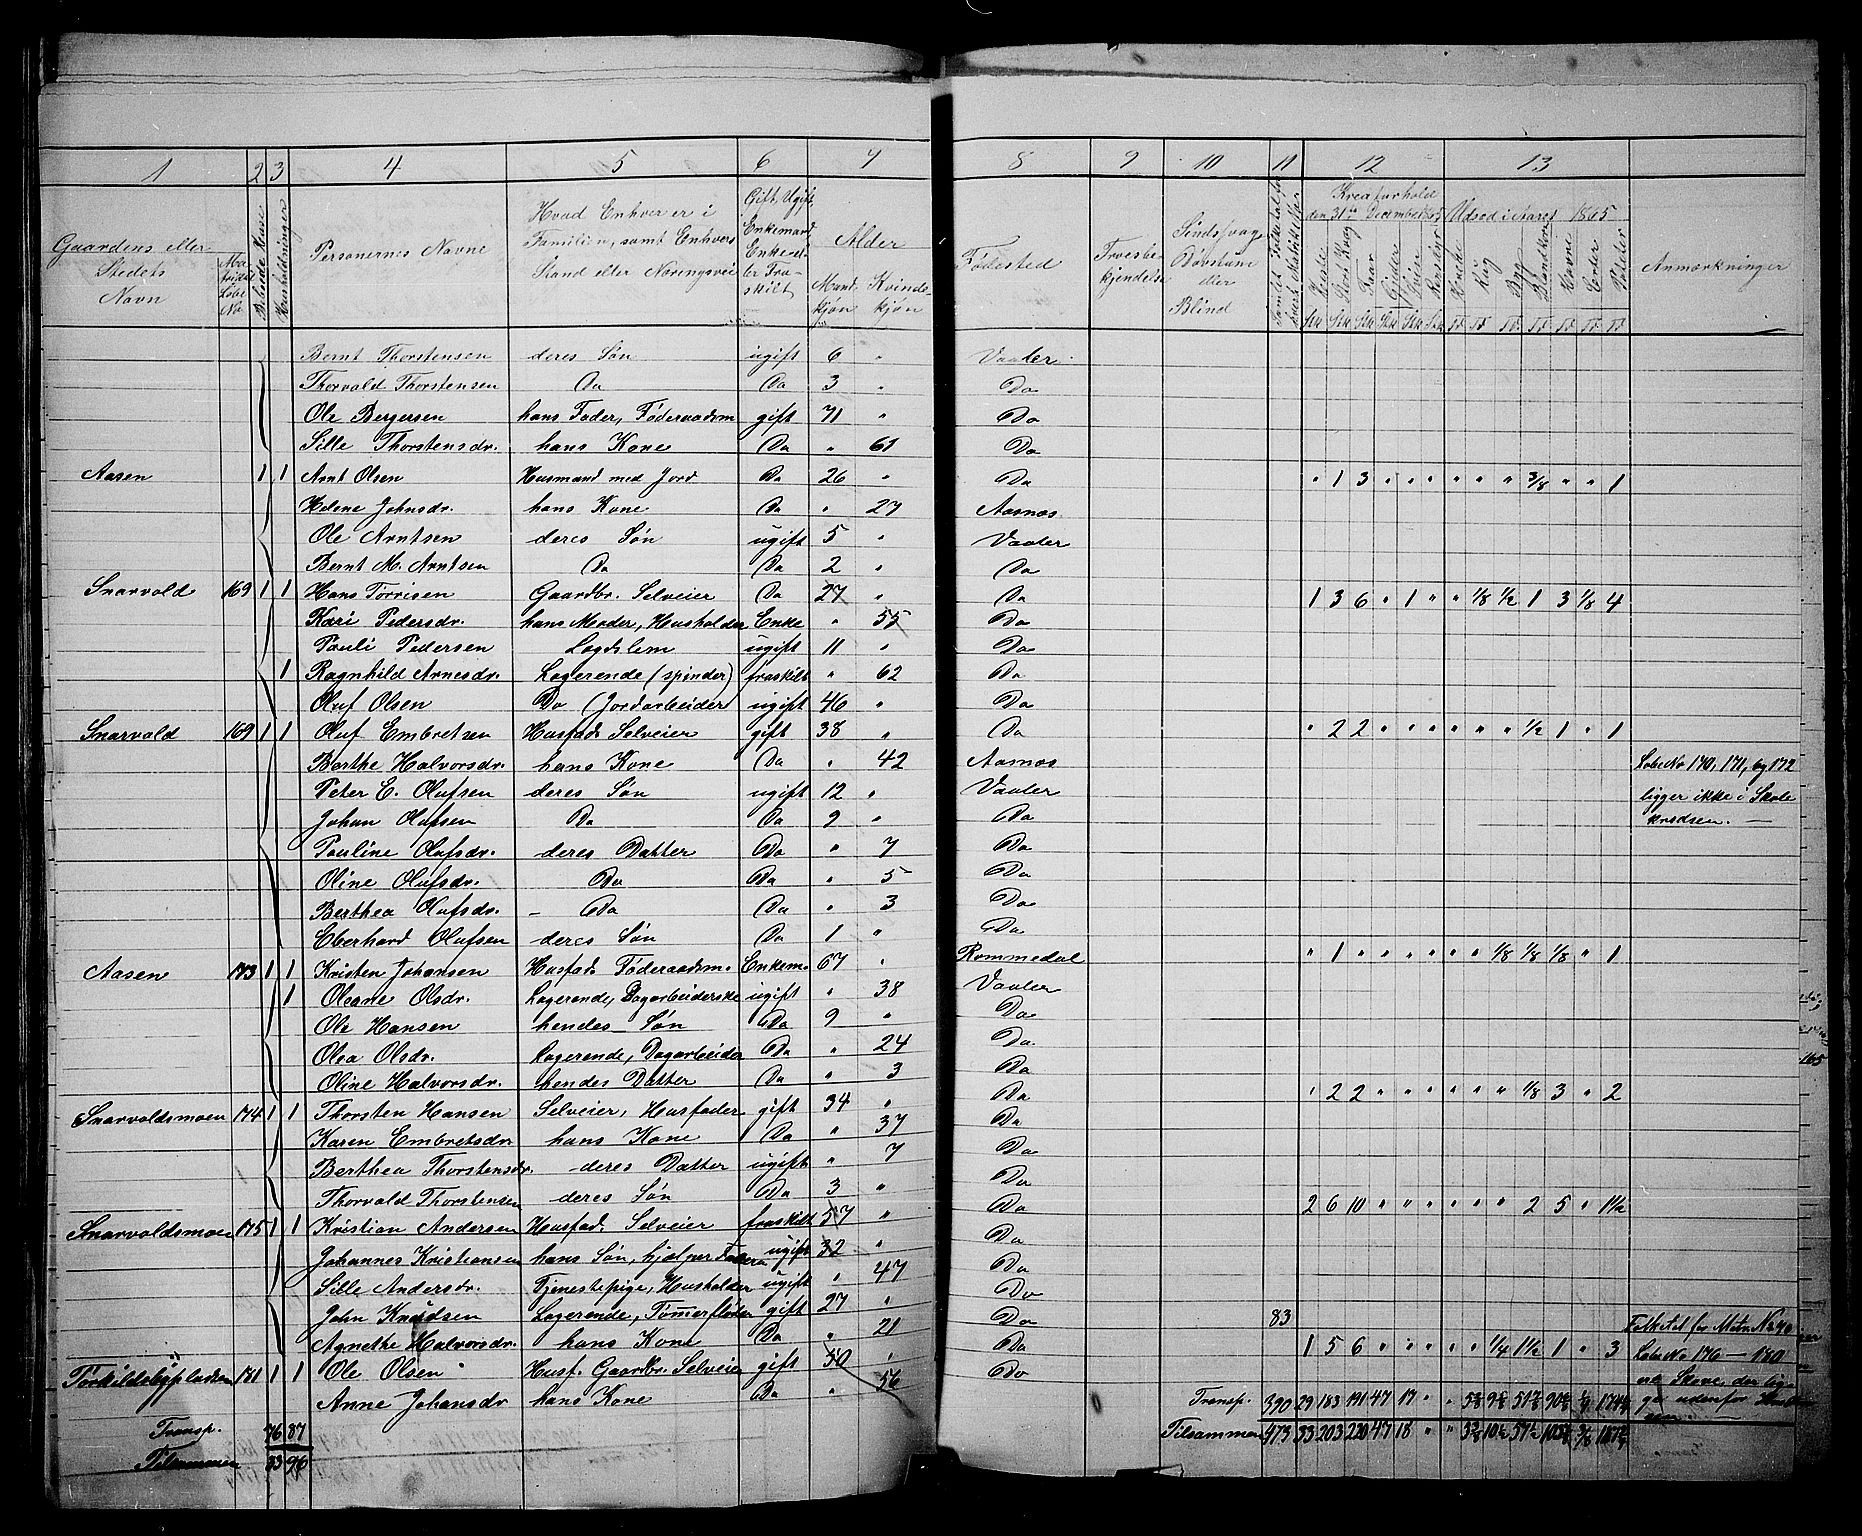 1 2 3 4 5 6 7
Gaardens eller Stedets Navn Matrikul Løbe No Beboede Huse Husholdninger Personernes Navne Hvad Enhver er i Familien, samt Enhvers Stand eller Næringsvei Gift, Ugift, Enkemand, Enke eller Fraskilt Alder Mandkjøn Kvindekjøn
Bernt Thorstensen deres Søn ugift 6 "
Thorvald Thorstensen Do Do 3 "
Ole Bergersen hans Fader, Føderaadsm gift 71 "
Sille Thorstensdr. hans Kone Do " 61
Aasen 1 1 Arnt Olsen Husmand med Jord Do 26 "
Helene Johnsdr. hans Kone Do " 27
Ole Arntsen deres Søn ugift 5 "
Bernt M. Arntsen Do Do 2 "
Snarvold 169 1 1 Hans Tørrisen Gaardbr. Selveier Do 27 "
Kari Pedersdr. hans Moder, Husholder Enke " 55
Pauli Pedersen Logdslem ugift 11 "
1 Ragnhild Arnesdr. Logerende (spinder) fraskilt " 62
Oluf Olsen Do (Jordarbeider ugift 46 "
Snarvold 169 1 1 Oluf Embretsen Husfad. Selveier gift 38 "
Berthe Halvorsdr. hans Kone Do " 42
Peter E. Olufsen deres Søn ugift 12 "
Johan Olufsen Do Do 9 "
Pauline Olufsdr. deres Datter Do " 7
Oline Olufsdr. Do Do " 5
Berthea Olufsdr. - Do Do " 3
Eberhard Olufsen deres Søn Do 1 "
Aasen 173 1 1 Kristen Johansen Husfad. Føderaadsm. Enkem. 67 "
1 Oleane Olsdr. Logerende, Dagarbeiderske ugift " 38
Ole Hansen hendes Søn Do 9 "
Olea Olsdr. Logerende, Dagarbeider Do " 24
Oline Halvorsdr. hendes Datter Do " 3
Snarvoldsmoen 174 1 1 Thorsten Hansen Selveier, Husfader gift 34 "
Karen Embretsdr. hans Kone Do " 37
Berthea Thorstensdr. deres Datter ugift " 7
Thorvald Thorstensen deres Søn Do 3 "
Snarvoldsmoen 175 1 1 Kristian Andersen Husfad. Selveier fraskilt 57 "
Johannes Kristiansen hans Søn, hjelper Faderen ugift 32 "
Sille Andersdr. Tjenestepige, Husholder ugift " 47
John Knudsen Logerende, Tømmerfløder gift 27 "
Agnethe Halvorsdr. hans Kone Do " 21
Torkildsbypladsen 181 1 1 Ole Olsen Husf. Gaardbr. Selveier gift 50 "
Anne Johansdr hans Kone Do " 56
Transp. 76 87
Tilsammen 83 96
8 9 10 11 12 13
Fødested Troesbekjendelse Sindssvag Døvstum eller Blind Samlet Folketal for hvert Matrikulno. Kreaturhold den 31te December Udsæd i Aaret 1865 Anmærkninger
Heste Stort Kvæg Faar Gjeder Sviin Rensdyr Hvede Rug Byg Blandkorn Havre Erter Poteter
Stk Stk Stk Stk Stk Stk Td Td Td Td Td Td Td
Vaaler
Do
Do
Do
Do " 1 3 " " " " " " 3/8 " " 1
Aasnæs
Vaaler
Do
Do 1 3 6 " 1 " " 1/8 1/2 1 3 1/8 4
Do
Do
Do
Do
Do " 2 2 " " " " " " 1/2 1 " 1
Aasnæs Løbe No 170, 171, og 172
Vaaler ligger ikke i Skole
Do kredsen. —
Do
Do
Do
Do
Rommedal " 1 " " " " " " 1/8 1/8 1/8 " 1
Vaaler
Do
Do
Do
Do " 2 2 " " " " " " 1/8 3 " 2
Do
Do
Do
Do 2 6 10 " " " " " " 2 5 " 1 1/2
Do
Do
Do
Do 83 Folketal for Matr. No 40
Do 1 5 6 " " " " " 1/4 1 1/2 1 " 3 Løbe No 176 — 180
Do er Skove, der lig-
Transp. 390 29 183 191 47 17 " " ge udenfor
Tilsammen 473 33 203 220 47 18 " "